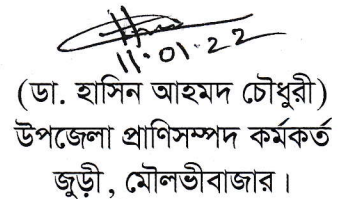 11.01.22
(ডা. হাসিন আহমদ চৌধুরী)
উপজেলা প্রাণিসম্পদ কর্মকর্ত
জুড়ী , মৌলভীবাজার।